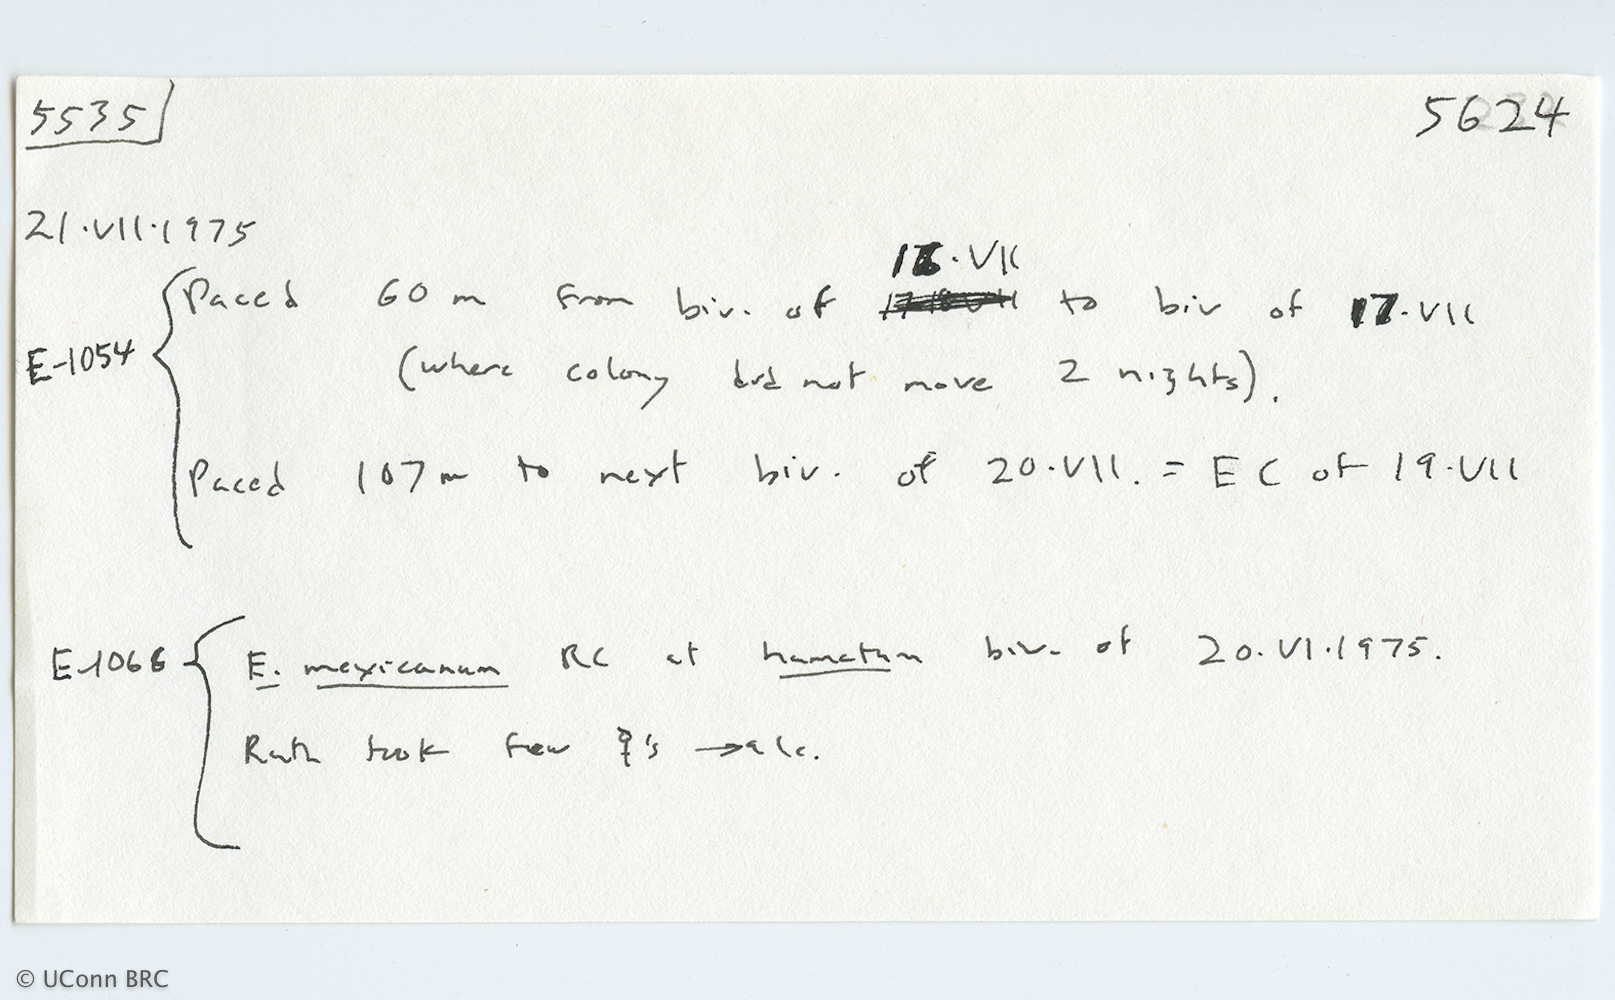 5535
5624
21.VII.1975
E-1054
Paced 60 m from biv. of 16.VII to biv of 17.VII
(where colony did not move 2 nights).
Paced 107m to next biv. of 20.VII. = EC of 19.VII
E-1066
E. mexicanum RC at hamatum biv. of 20.VI.1975.
Ruth took few ☿'s → alc.
© UConn BRC